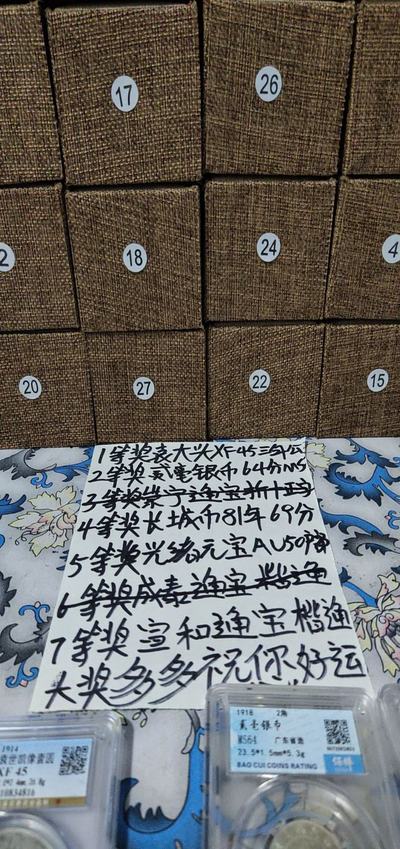 17
26
2
18
24
4
20
27
22
15
1等奖袁大头XF45三年
2等奖贰毫银币64分MS
3等奖崇宁通宝折十
4等奖长城币81年69分
5等奖光绪元宝AU50
6等奖咸丰通宝楷通
7等奖宣和通宝楷通
大奖多多祝你好运
1914
袁世凯像壹圆
XF 45
10834816
1918 2角
贰毫银币
MS64 广东省造
23.5*1.5mm*5.3g
BAO CUI COINS RATING
保粹